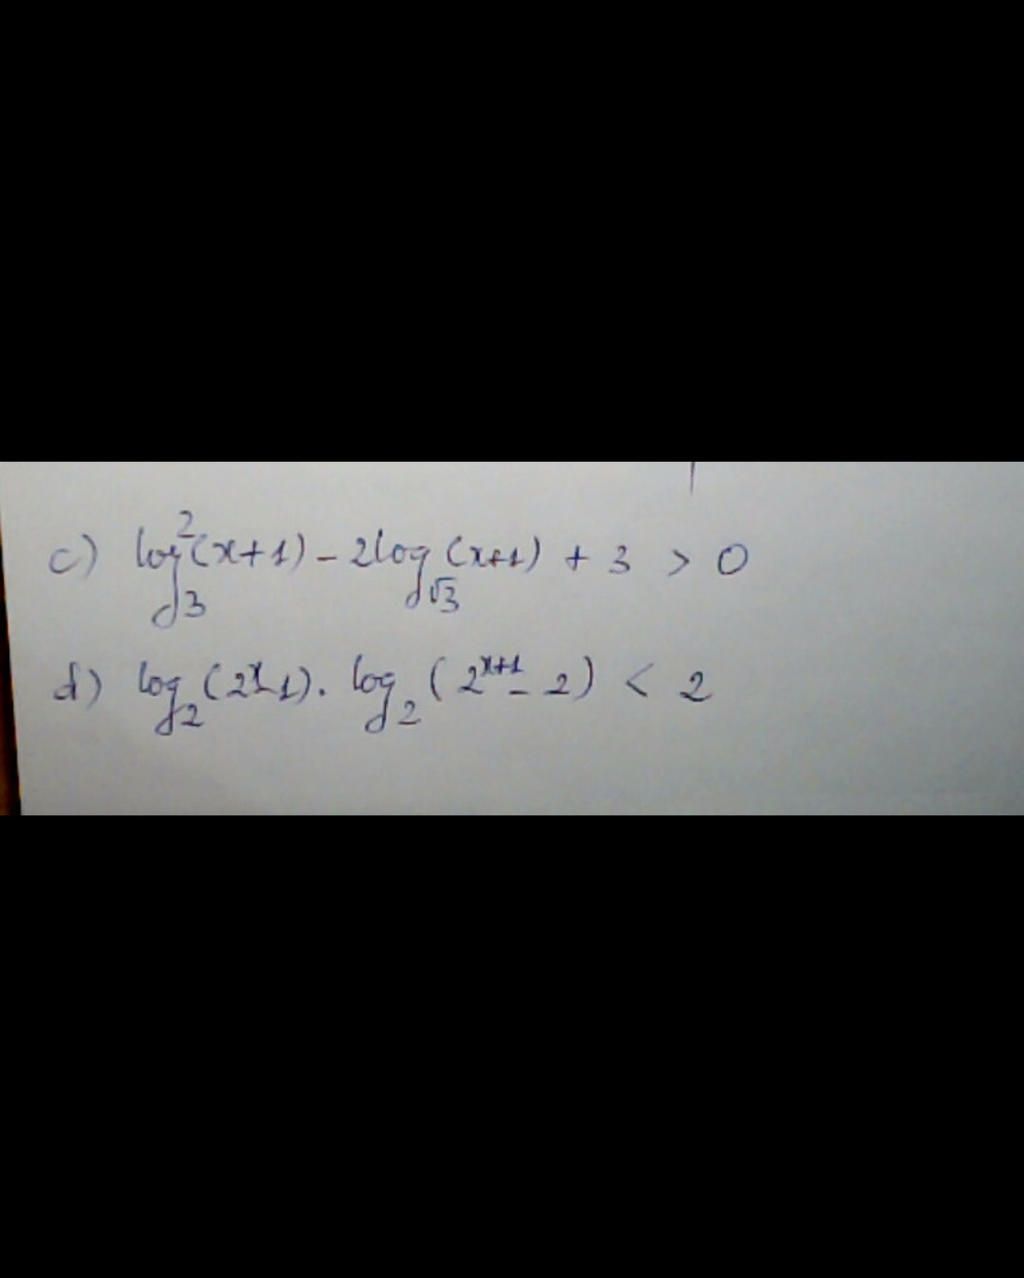 c) log²₃(x+1) - 2log_√3(x+1) + 3 > 0
d) log₂(2ˣ-1). log₂(2ˣ⁺¹- 2) < 2